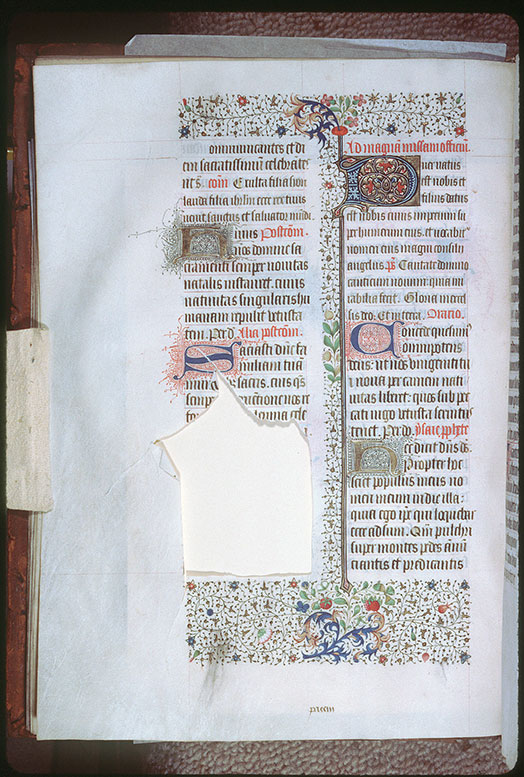 ommunicantes et di
em sacratissimū celebrātes
Exulta filia sion
lauda filia ihrlm ecce rex tuus
uenit sanctus et saluator mūdi.
Postcōm.
nos domine sa
cramenti semper nouitas
natalis instauret. cuius
natiuitas singularis hu
manam repulit uetusta
tem. Per d. Alia postcom.
Saciasti dne fa
miliam tuā
muneribus sacris. eius qs
semper
Ad magnā missam officiū.
Puer natus
est nobis et
filius datus
est nobis cuius imperium su
per humerum eius. et uocabit
nomen eius magni consilii
angelus ps Cantate domino
canticum nouum: quia mi
rabilia fecit. Gloria in excel
sis deo. Et in terra. Oratio.
Concede quesum9
omnipotens
deus: ut nos unigeniti tui
noua per carnem nati
uitas liberet: quos sub pec
cati iugo uetusta seruitus
tenet. Per d.
Hec dicit dns ds.
Propter hoc
sciet populus meus no
men meum in die illa:
quia ego ipe qui loquebar
ecce adsum. Qm pulchri
super montes pedes annū
ciantis et predicantis
precin